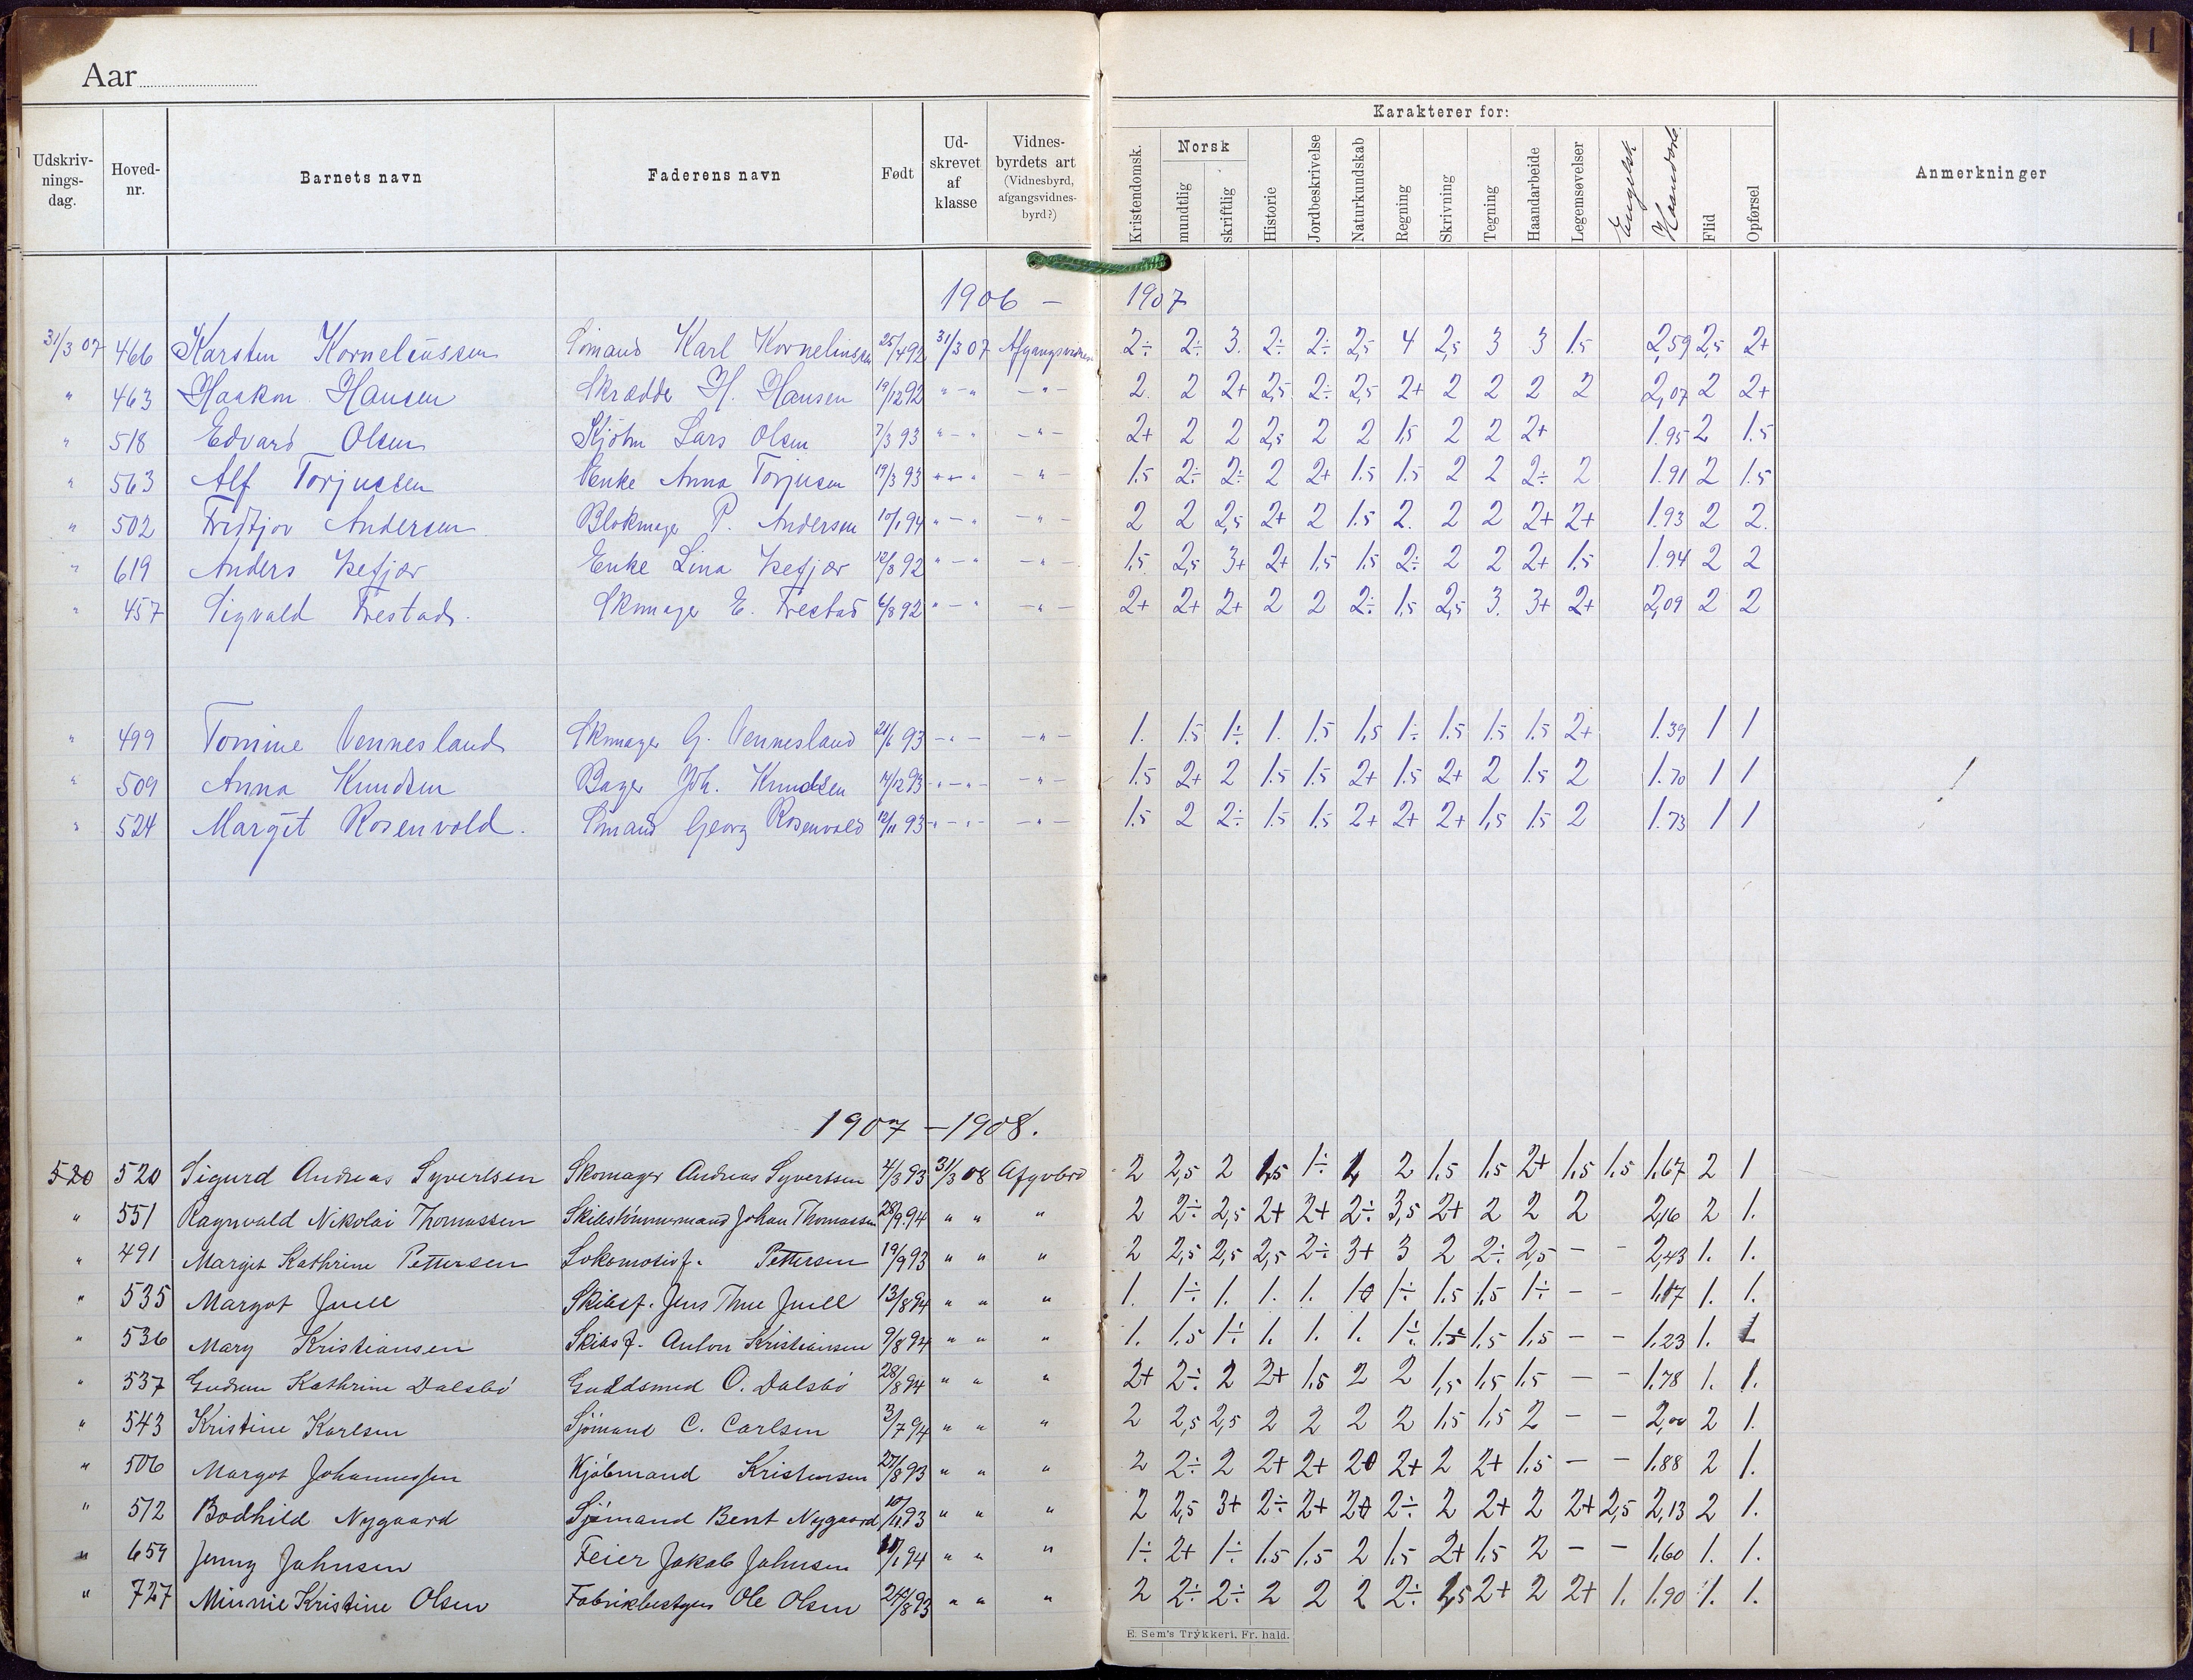 11
Aar
Udskrivningsdag. Hovednr. Barnets navn Faderens navn Født Udskrevet af klasse Vidnesbyrdets art (Vidnesbyrd, afgangsvidnesbyrd?) Karakterer for: Kristendomsk. Norsk mundtlig skriftlig Historie Jordbeskrivelse Naturkundskab Regning Skrivning Tegning Haandarbeide Legemsøvelser Engelsk Flid Opførsel Anmerkninger
1906 — 1907
31/3 07 466 Karsten Korneliussen Sömand Karl Korneliussen 25/4 92 31/3 07 2÷ 2÷ 3. 2÷ 2÷ 2,5 4 2,5 3 3 1.5 2,59 2,5 2+
" 463 Haakon Hansen Skrædder H. Hansen 19/12 92 " — " — " — 2. 2 2+ 2,5 2÷ 2,5 2+ 2 2 2 2 2,07 2 2+
" 518 Edvard Olsen Lars Olsen 7/3 93 " — " — " — 2+ 2 2 2,5 2 2 1.5 2 2 2+ 1.95 2 1.5
" 563 Alf Torjussen Enke Anna Torjusen 19/3 93 " — " — " — 1.5 2÷ 2÷ 2 2+ 1.5 1.5 2 2 2÷ 2 1.91 2 1.5
" 502 Fridtjov Andersen Blokmager P. Andersen 10/1 94 " — " — " — 2 2 2,5 2+ 2 1.5 2. 2 2 2+ 2+ 1.93 2 2.
" 619 Anders Isefjær Enke Lina Isefjær 12/8 92 " — " — " — 1.5 2,5 3+ 2+ 1,5 1.5 2÷ 2 2 2+ 1.5 1.94 2 2
" 457 Sigvald Trestad. Skmager E. Trestad 6/8 92 " — " — " — 2+ 2+ 2+ 2 2 2÷ 1.5 2,5 3. 3+ 2+ 2,09 2 2
" 499 Tomine Vennesland Skmager G. Vennesland 21/6 93 — " — — " — 1. 1.5 1÷ 1. 1.5 1,5 1÷ 1.5 1.5 1.5 2+ 1.39 1 1
" 509 Anna Knudsen Bager Joh. Knudsen 14/12 93 — " — " — — " — 1.5 2+ 2 1.5 1.5 2+ 1.5 2+ 2 1.5 2 1.70 1 1 !
" 524 Margit Rosenvold. Sömand Georg Rosenvold 12/11 93 — " — " — — " — 1.5 2 2÷ 1.5 1.5 2+ 2+ 2+ 1,5 1.5 2 1.73 1 1
1907 — 1908.
520 520 Sigurd Andreas Syvertsen Skomager Andreas Syvertsen 4/3 93 31/3 08 2 2,5 2 1,5 1÷ 2 1,5 1,5 2+ 1,5 1,5 1,67 2 1
" 551 Ragnvald Nikolai Thomassen Skibstömmermand Johan Thomassen 28/9.94 " " " 2 2÷ 2,5 2+ 2+ 2÷ 3,5 2+ 2 2 2 2,16 2 1.
" 491 Margit Kathrine Pettersen Lokomotivf. Pettersen 19/9 93 " " " 2 2,5 2,5 2,5 2÷ 3+ 3 2 2÷ 2,5 — — 2,43 1. 1.
" 535 Margot Juell Skibsf. Jens Thue Juell 13/8 94 " " " 1. 1÷ 1. 1. 1. 1÷ 1,5 1,5 1÷ — — 1,17 1. 1.
" 536 Mary Kristiansen Skibsf. Anton Kristiansen 9/8 94 " " " 1. 1.5 1÷ 1. 1. 1. 1÷ 1.5 1.5 1.5 — — 1,23 1. 1
" 537 Gudrun Kathrine Dalsbö Guldsmed O. Dalsbö 28/8 94 " " " 2+ 2÷ 2 2+ 1,5 2 2 1,5 1,5 1,5 — — 1,78 1. 1.
" 543 Kristine Karlsen Sjömand C. Carlsen 3/7 94 " " " 2 2,5 2,5 2 2 2 2 1,5 1,5 2 — — 2,00 2 1.
" 506 Margot Johannessen Kjöbmand Kristensen 27/8 93 " " " 2 2÷ 2 2+ 2+ 20 2+ 2 2+ 1.5 — — 1.88 2 1.
" 512 Bodhild Nygaard Sjömand Bent Nygaard 10/11 93 " " " 2 2,5 3+ 2÷ 2+ 2÷ 2 2+ 2 2+ 2,5 2,13 2 1.
" 659 Jenny Johnsen Feier Jakob Johnsen 94 " " " 1÷ 2+ 1÷ 1.5 1.5 2 1.5 2+ 1.5 2 — — 1,60 1. 1.
" 727 Minnie Kristine Olsen Fabrikbestyrer Ole Olsen 24/8 93 " " " 2 2÷ 2÷ 2 2 2 2÷ 1,5 2+ 2 2+ 1. 1.90 1. 1.
E. Sem's Trykkeri, Fr. hald.